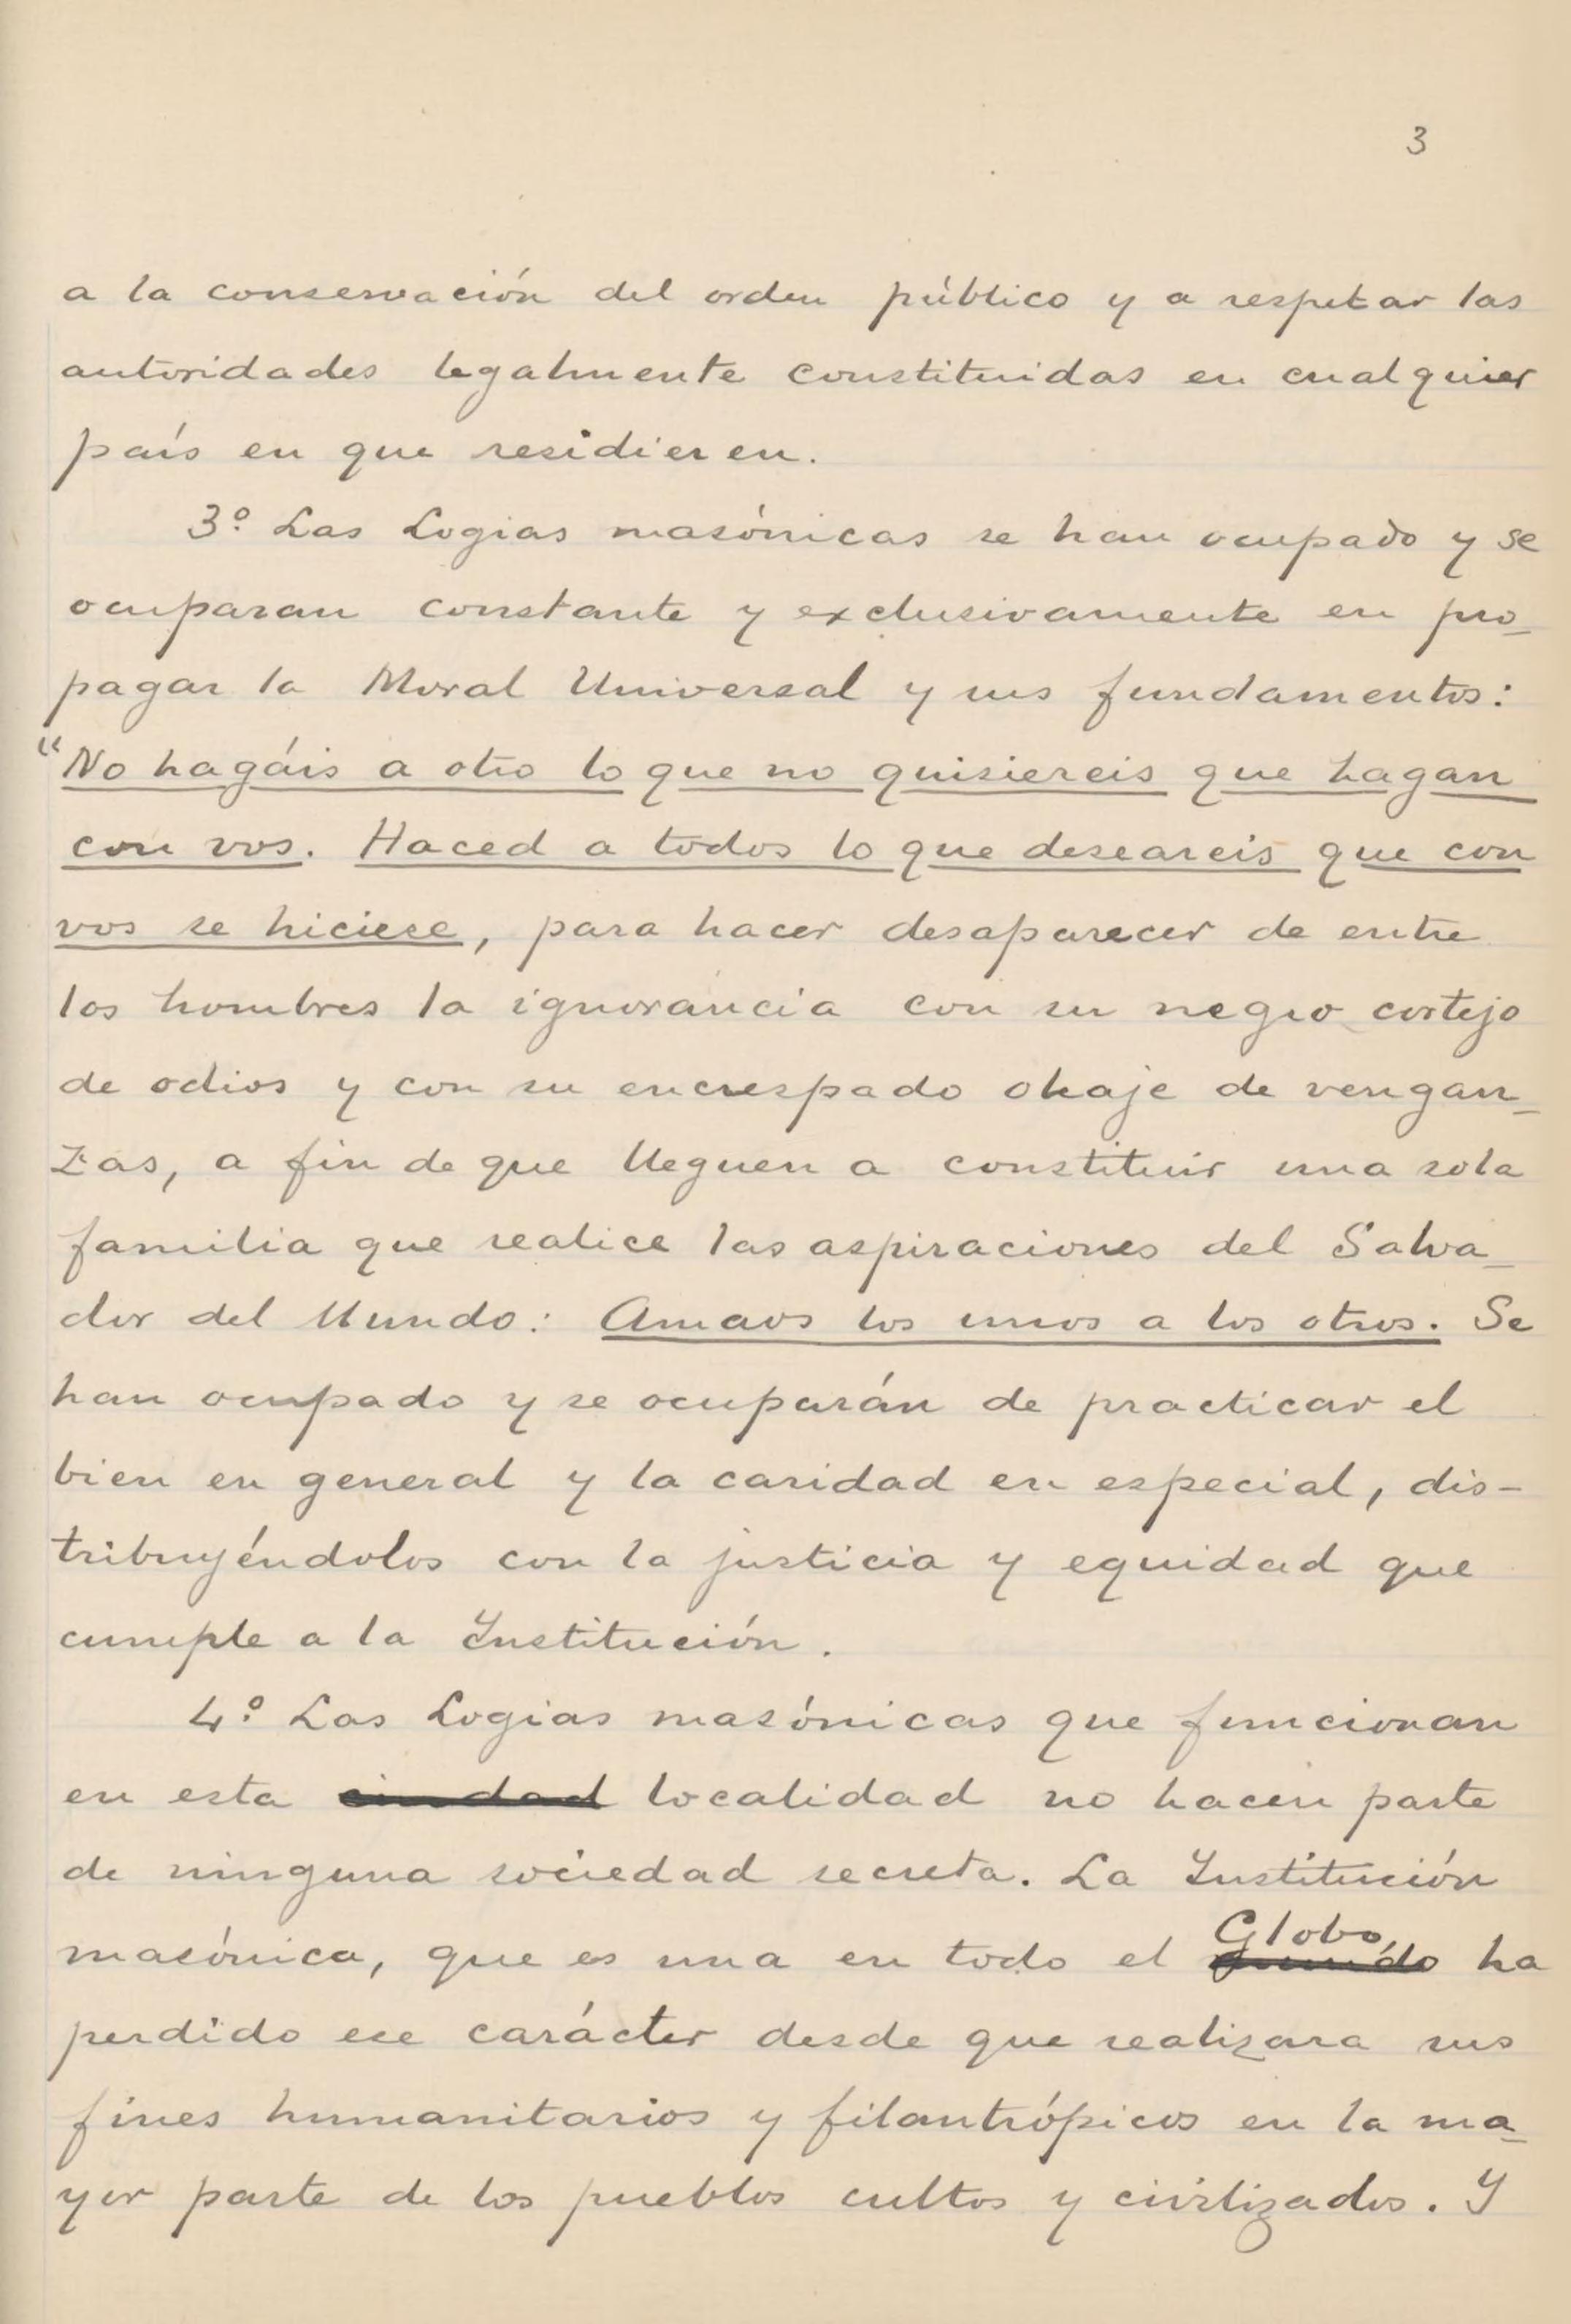 3
a la conservación del orden público y a respetar las
autoridades legalmente constituidas en cualquier
país en que residieren.
3º. Las Logias masónicas se han ocupado y se
ocuparan constante y exclusivamente en pro-
pagar la Moral Universal y sus fundamentos:
"No hagáis a otro lo que no quisiereis que hagan
con vos. Haced a todos lo que deseareis que con
vos se hiciese, para hacer desaparecer de entre
los hombres la ignorancia con su negro cortejo
de odios y con su encrespado oleaje de vengan-
zas, a fin de que lleguen a constituir una sola
familia que realice las aspiraciones del Salva-
dor del Mundo: Amaos los unos a los otros. Se
han ocupado y se ocuparán de practicar el
bien en general y la caridad en especial, dis-
tribuyéndolos con la justicia y equidad que
cumple a la Institución.
4º. Las Logias masónicas que funcionan
en esta ciudad localidad no hacen parte
de ninguna sociedad secreta. La Institución
Globo,
masónica, que es una en todo el mundo ha
perdido ese carácter desde que realizara sus
fines humanitarios y filantrópicos en la ma-
yor parte de los pueblos cultos y civilizados. Y